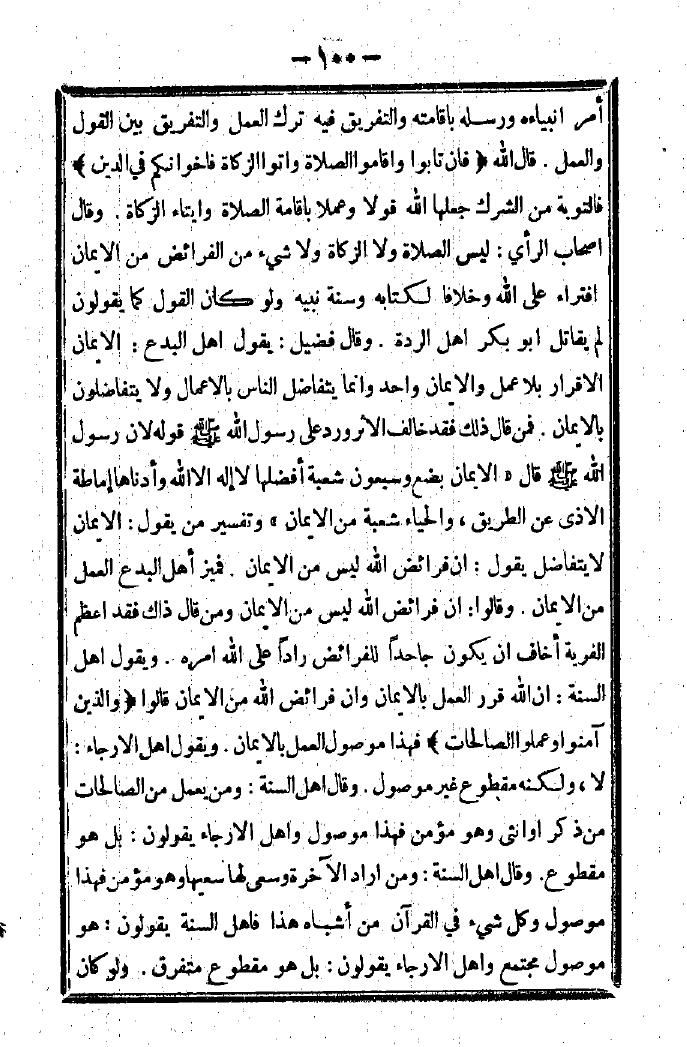 — ١٠٠ —
أمر انبياءه ورسله باقامته والتفريق فيه ترك العمل والتفريق بين القول
والعمل . قال الله ﴿ فان تابوا واقاموا الصلاة واتوا الزكاة فاخوانكم في الدين ﴾
فالتوبة من الشرك جعلها الله قولا وعملا باقامة الصلاة وايتاء الزكاة . وقال
اصحاب الرأي : ليس الصلاة ولا الزكاة ولا شيء من الفرائض من الايمان
افتراء على الله وخلافا لكتابه وسنة نبيه ولو كان القول كما يقولون
لم يقاتل ابو بكر اهل الردة . وقال فضيل : يقول اهل البدع : الايمان
الاقرار بلا عمل والايمان واحد وانما يتفاضل الناس بالاعمال ولا يتفاضلون
بالايمان . فمن قال ذلك فقد خالف الأثر ورد على رسول الله ﷺ قوله لان رسول
الله ﷺ قال « الايمان بضع وسبعون شعبة أفضلها لا إله الا الله وأدناها إماطة
الاذى عن الطريق ، والحياء شعبة من الايمان » وتفسير من يقول : الايمان
لا يتفاضل يقول : ان فرائض الله ليس من الايمان . فميز أهل البدع العمل
من الايمان . وقالوا : ان فرائض الله ليس من الايمان ومن قال ذاك فقد اعظم
الفرية أخاف ان يكون جاحداً للفرائض راداً على الله امره . ويقول اهل
السنة : ان الله قرر العمل بالايمان وان فرائض الله من الايمان قالوا ﴿ والذين
آمنوا وعملوا الصالحات ﴾ فهذا موصول العمل بالايمان . ويقول اهل الارجاء :
لا ، ولكنه مقطوع غير موصول . وقال اهل السنة : ومن يعمل من الصالحات
من ذكر او انثى وهو مؤمن فهذا موصول واهل الارجاء يقولون : بل هو
مقطوع . وقال اهل السنة : ومن اراد الآخرة وسعى لها سعيها وهو مؤمن فهذا
موصول وكل شيء في القرآن من أشباه هذا فاهل السنة يقولون : هو
موصول مجتمع واهل الارجاء يقولون : بل هو مقطوع متفرق . ولو كان